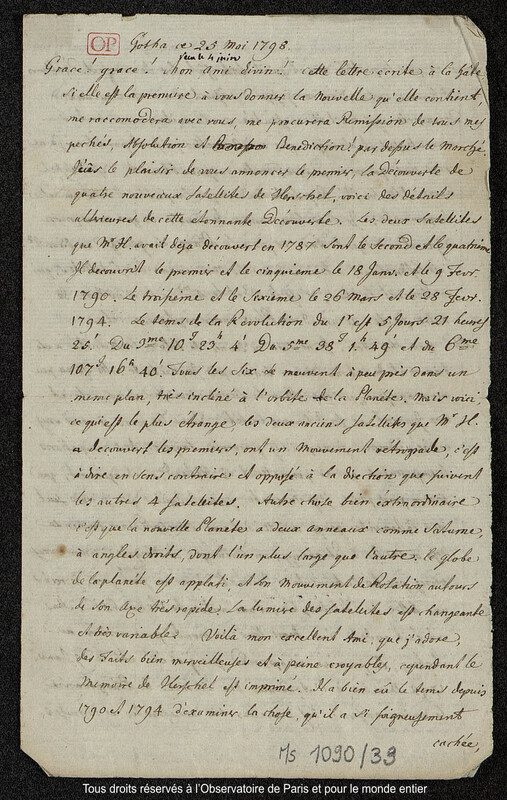 OP Gotha ce 25 Mai 1798.
reçu le 4 juin
Grace! grace! Mon ami divin!! cette lettre écrite à la hâte
si elle est la premiere à vous donner la Nouvelle qu'elle contient,
me raccomodera avec vous, me procurera Remission de tous mes
pechés, Absolution et Benediction, par dessus le marché.
J'eus le plaisir de vous annoncer le premier, la Découverte de
quatre nouveaux satellites de Herschel, voici des détails
ulterieures de cette étonnante Découverte. Les deux Satellites
que Mr H. avait deja découvert en 1787 sont le second et le quatrieme
Il decouvrit le premier et le cinquieme le 18 Janv. et le 9 Fevr.
1790. Le troisieme et le Sixieme le 26 Mars et le 28 Fevr.
1794. Le tems de la Revolution du 1er est 5 Jours 21 heures
25'. Du 3me 10j 23h 4' Du 5me 38j 1h 49' et du 6me
107j 16h 40'. Tous les Six se meuvent à peu près dans un
meme plan, très incliné à l'orbite de la Planète, mais voici
ce qui est le plus étrange, les deux anciens satellites que Mr H.
a decouvert les premiers, ont un Mouvement retrograde, c'est
à dire en sens contraire et opposé à la direction que suivent
les autres 4 satellites. Autre chose bien extraordinaire
c'est que la nouvelle Planète a deux anneaux comme Saturne,
à angles droits, dont l'un plus large que l'autre. le globe
de la planète est applati, et son mouvement de Rotation autours
de son axe très rapide. La lumiere des satellites est changeante
et très variable. Voilà mon excellent Ami, que j'adore,
des faits bien merveilleuses et à peine croyables, cependant le
Memoire de Herschel est imprimé. Il a bien eû le tems depuis
1790 et 1794 d'examiner la chose, qu'il a si soigneusement
cachée,
Ms 1090/39
Tous droits réservés à l'Observatoire de Paris et pour le monde entier